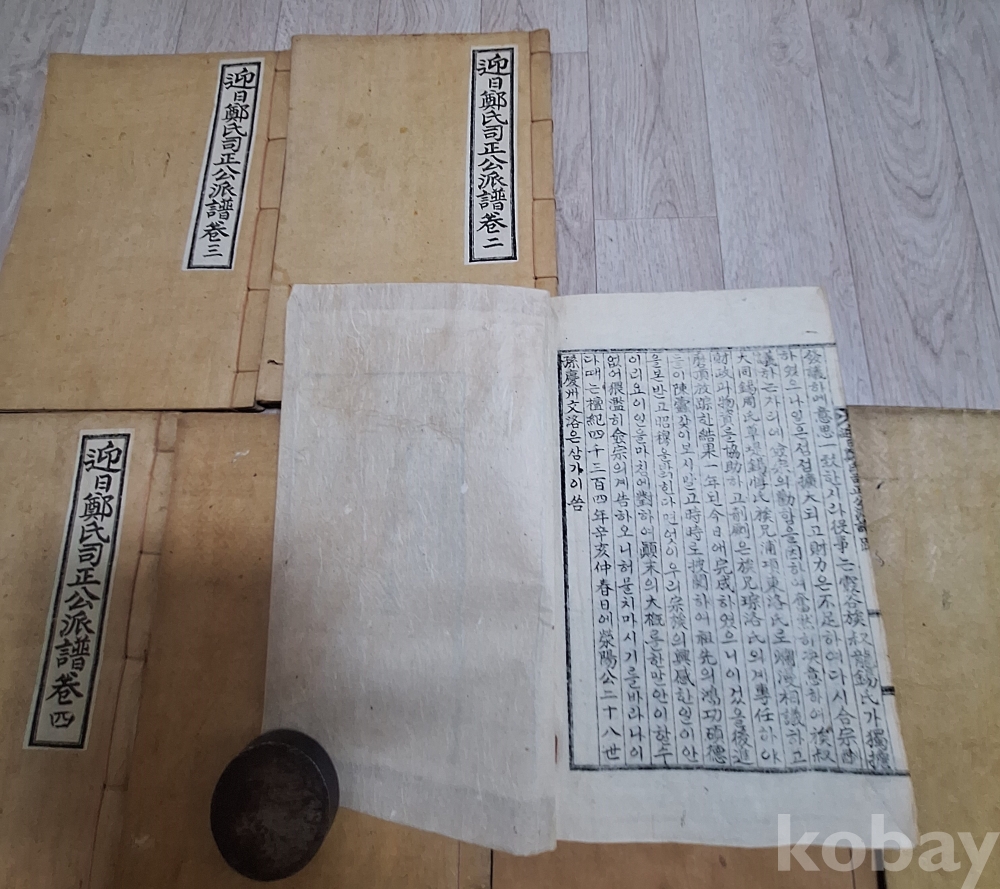 迎日鄭氏司正公派譜卷三
迎日鄭氏司正公派譜卷二
迎日鄭氏司正公派譜卷四
会議하에 意思一致한지라 從事는 務谷族叔 龍錫氏가 獨擔
하였으나 일은 점점 擴大되고 財力은 不足하여 다시 合宗
議하는 자리에 의 勸함을 因하여 奮然히 決意하여 族叔
大同錫周氏 族兄 浦項東洛氏로 爛漫相議하고
財政과 物資를 協助하고 剞劂은 族兄琮洛氏의게 專任하야
放 한 結果 一年된 今日에 完成하였으니 이것을 後進
들이 陳 갖이 보시말고 時時로 披閱하여 祖先의 鴻功碩德
을 본반고 昭穆을 밝힌다면 엇이 우리 宗族의 興感한 일이 안
이리요 이 일을 마친에 對하여 顚末의 大槪를 한말 안이할수
없어 猥濫히 僉宗의게 告하오니 허물치 마시기를 바라나이
다 때는 檀紀四千三百四年辛亥仲春日에 滎陽公二十八世
孫慶州文洛은 삼가이 씀
kobay